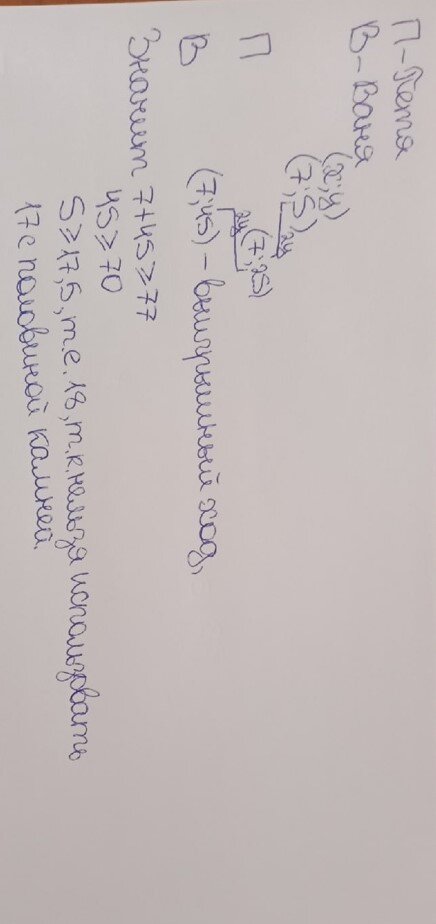 П - Петя
В - Ваня
(x; y)
(7; S)
2y
П (7; 2S)
2y
В (7; 4S) - выигрышный ход,
Значит 7+4S ≥ 77
4S ≥ 70
S ≥ 17,5, т.е. 18, т.к. нельзя использовать
17 с половиной камней.